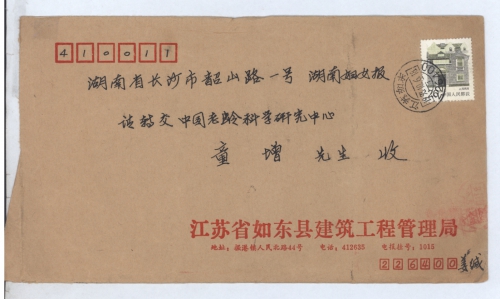 410011
湖南省长沙市韶山路一号 湖南妇女报
请转交 中国老龄科学研究中心
童 增 先生 收
江苏省如东县建筑工程管理局
地址：掘港镇人民北路44号 电话：412635 电报挂号：1015
226400